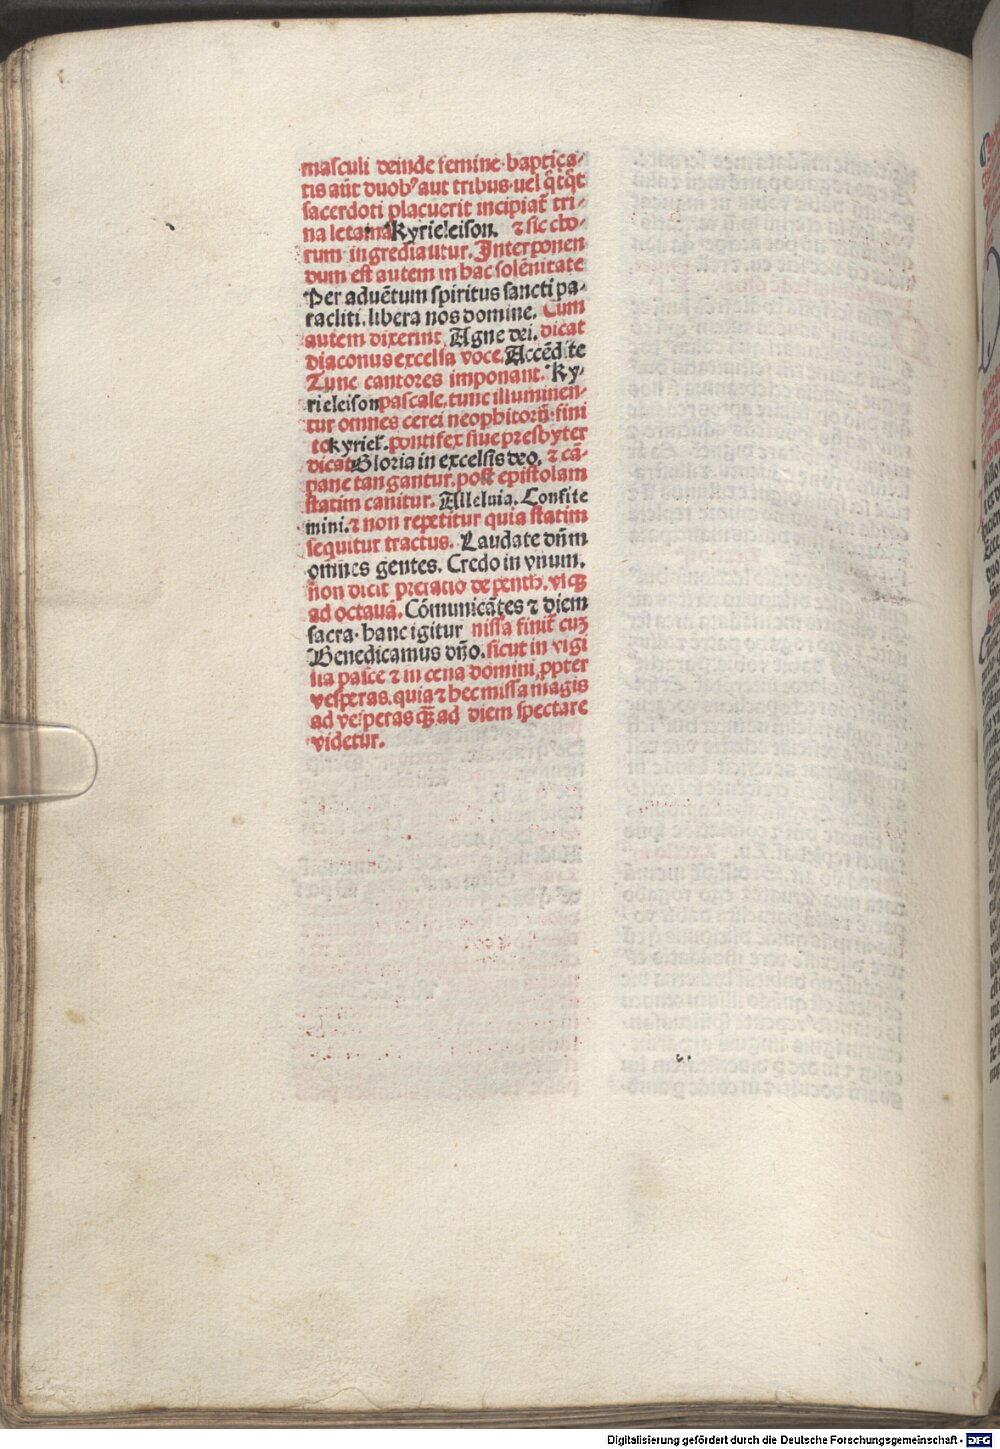 masculi deinde femine·baptiza⸗
tis aūt duobꝰ aut tribus·vel q̄tq̄t
sacerdoti placuerit incipiat̄ tri⸗
na letania Kyrieleison. ⁊ sic cho⸗
rum ingrediautur. Interponen
dum est autem in hac solēnitate
Per aduētum spiritus sancti pa⸗
racliti. libera nos domine. Cum
autem dixerint Agne dei. dicat
diaconus excelsa voce. Accēdite
Tunc cantores imponant. Ky⸗
rieleison pascale. tunc illuminen⸗
tur omnes cerei neophitorū·fini
to kyriel. pontifex siue presbyter
dicat Gloria in excelsis deo. ⁊ cā⸗
pane tangantur. post epistolam
statim canitur. Alleluia. Confite
mini. ⁊ non repetitur quia statim
sequitur tractus. Laudate dn̄m
omnes gentes. Credo in vnum.
non dicit prefatio de penth. vsqꝫ
ad octauā. Cōmunicātes ⁊ diem
sacra·hanc igitur missa finit̄ cuꝫ
Benedicamus dn̄o. sicut in vigi
lia pasce ⁊ in cena domini, ꝓpter
vesperas. quia ⁊ hec missa magis
ad vesperas qꝫ̄ ad diem spectare
videtur.
Digitalisierung gefördert durch die Deutsche Forschungsgemeinschaft - DFG